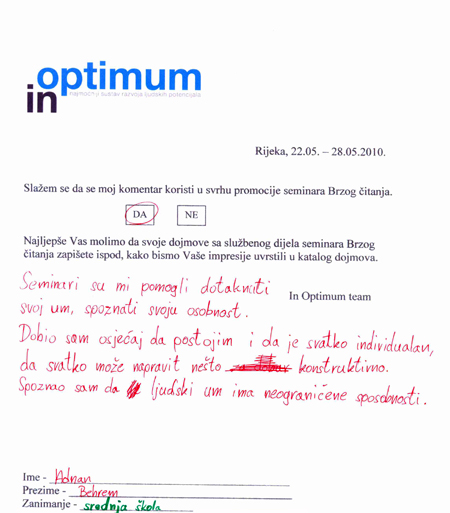 optimum
in
najmoćniji sustav razvoja ljudskih potencijala
Rijeka, 22.05. – 28.05.2010.
Slažem se da se moj komentar koristi u svrhu promocije seminara Brzog čitanja.
DA NE
Najljepše Vas molimo da svoje dojmove sa službenog dijela seminara Brzog
čitanja zapišete ispod, kako bismo Vaše impresije uvrstili u katalog dojmova.
In Optimum team
Seminari su mi pomogli dotaknuti
svoj um, spoznati svoju osobnost.
Dobio sam osjećaj da postojim i da je svatko individualan,
da svatko može napravit nešto konstruktivno.
Spoznao sam da ljudski um ima neograničene sposobnosti.
Ime - Adnan
Prezime - Behrem
Zanimanje - srednja škola